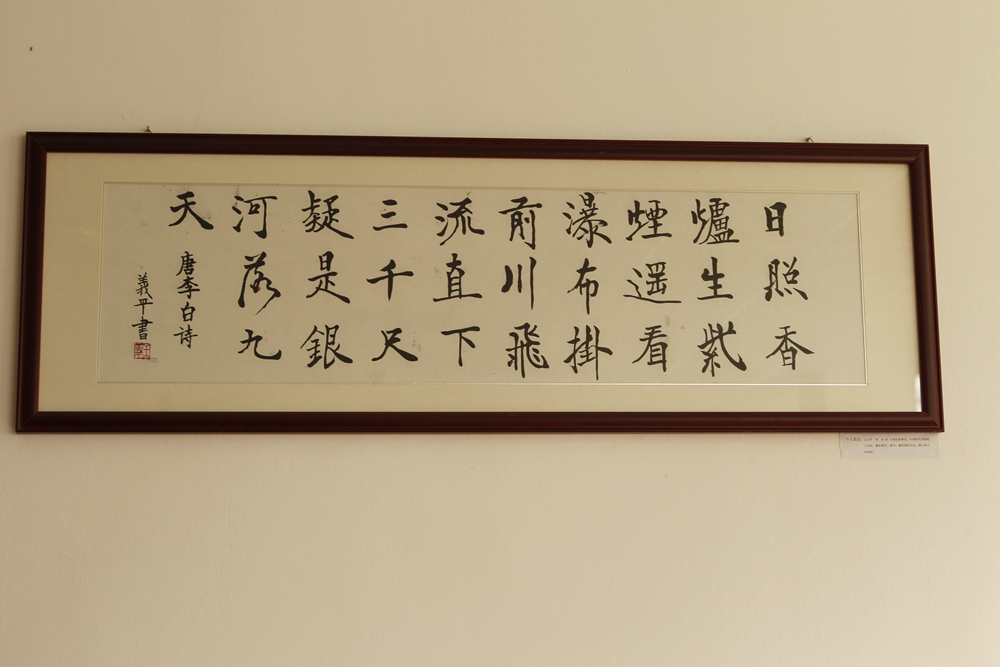 日照香
爐生紫
煙遥看
瀑布掛
前川飛
流直下
三千尺
疑是銀
河落九
天
唐李白诗
義平書